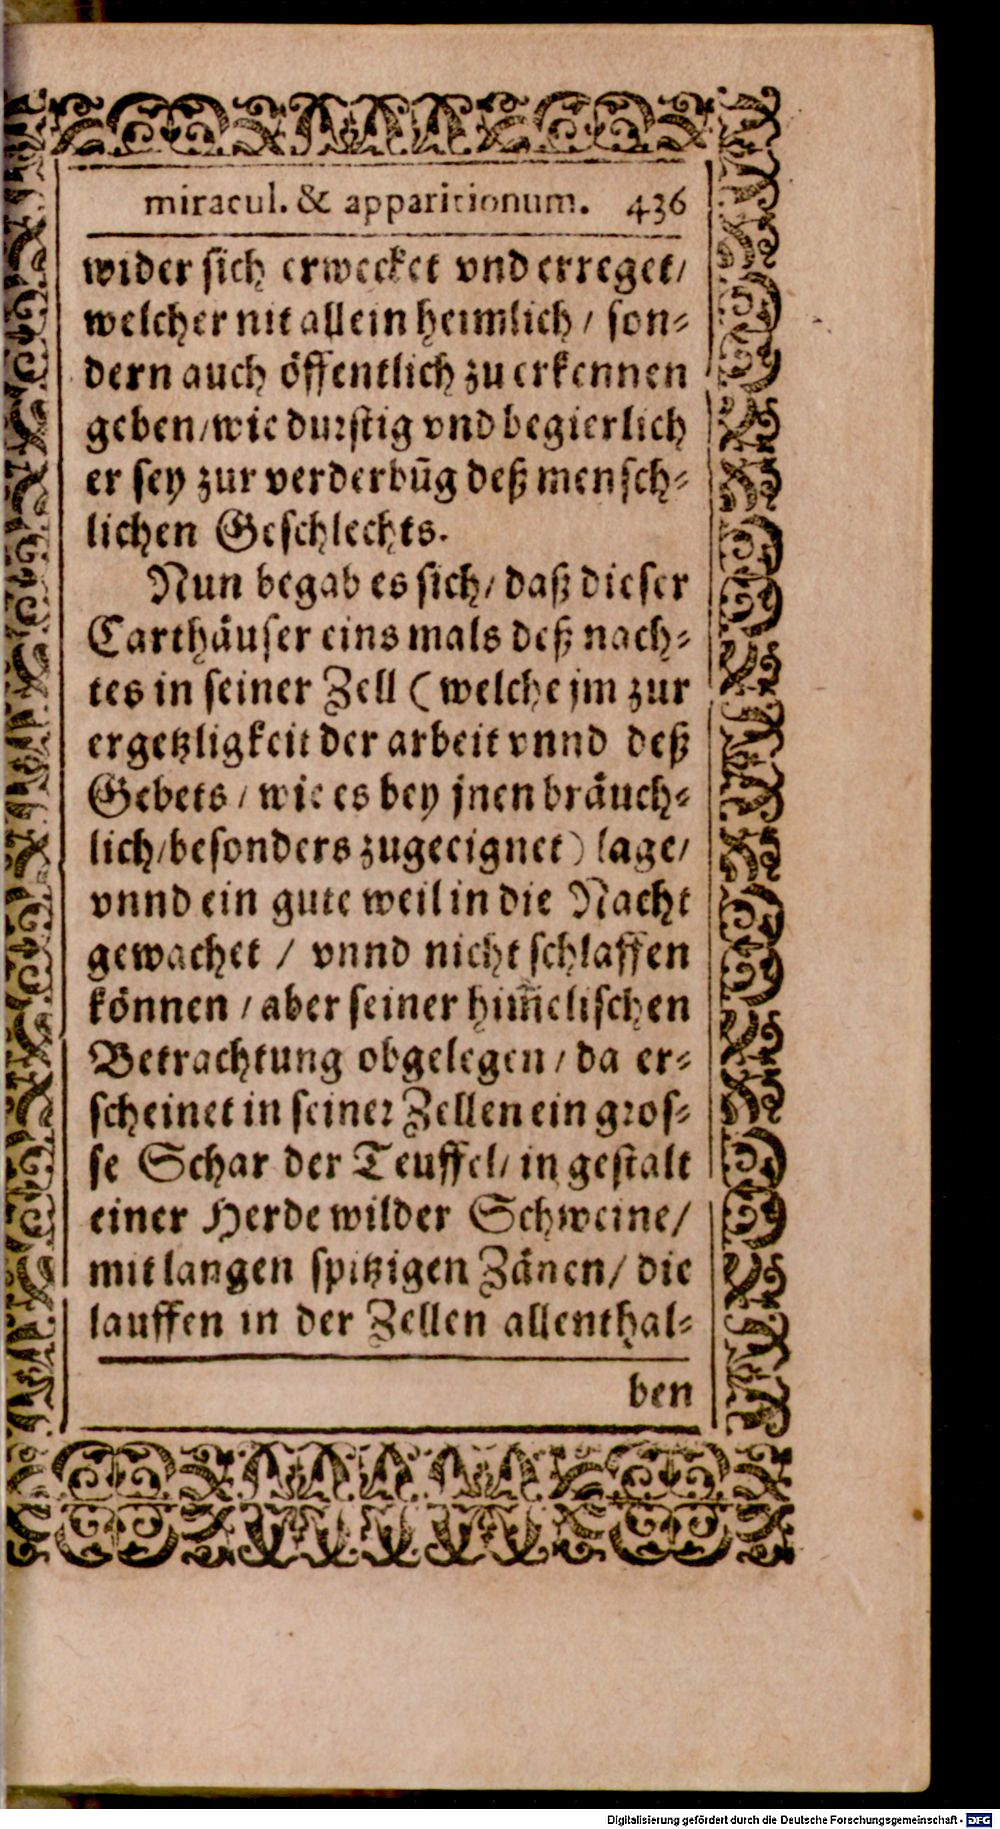 miracul. & apparitionum. 436
wider sich erwecket vnd erreget/
welcher nit allein heimlich / son-
dern auch öffentlich zu erkennen
geben/wie durstig vnd begierlich
er sey zur verderbūg deß mensch-
lichen Geschlechts.
Nun begab es sich/ daß dieser
Carthäuser eins mals deß nach-
tes in seiner Zell (welche jm zur
ergetzligkeit der arbeit vnnd deß
Gebets / wie es bey jnen bräuch-
lich/besonders zugeeignet) lage/
vnnd ein gute weil in die Nacht
gewachet / vnnd nicht schlaffen
können / aber seiner him̄elischen
Betrachtung obgelegen / da er-
scheinet in seiner Zellen ein gros-
se Schar der Teuffel/ in gestalt
einer Herde wilder Schweine/
mit langen spitzigen Zänen/ die
lauffen in der Zellen allenthal-
ben
Digitalisierung gefördert durch die Deutsche Forschungsgemeinschaft - DFG